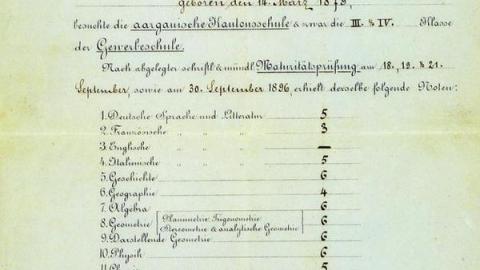 geboren den 14. März 1879,
besuchte die aargauische Kantonsschule & zwar die III. & IV. Klasse
der Gewerbeschule.
Nach abgelegter schriftl. & mündl. Maturitätsprüfung am 18., 19. & 21.
September, sowie am 30. September 1896, erhielt derselbe folgende Noten:
1. Deutsche Sprache und Litteratur 5
2. Französische „ „ „ 3
3. Englische „ „ „ —
4. Italienische „ „ „ 5
5. Geschichte 6
6. Geographie 4
7. Algebra 6
8. Geometrie Planimetrie, Trigonometrie 6
Stereometrie & analytische Geometrie
9. Darstellende Geometrie 6
10. Physik 6
11. 5